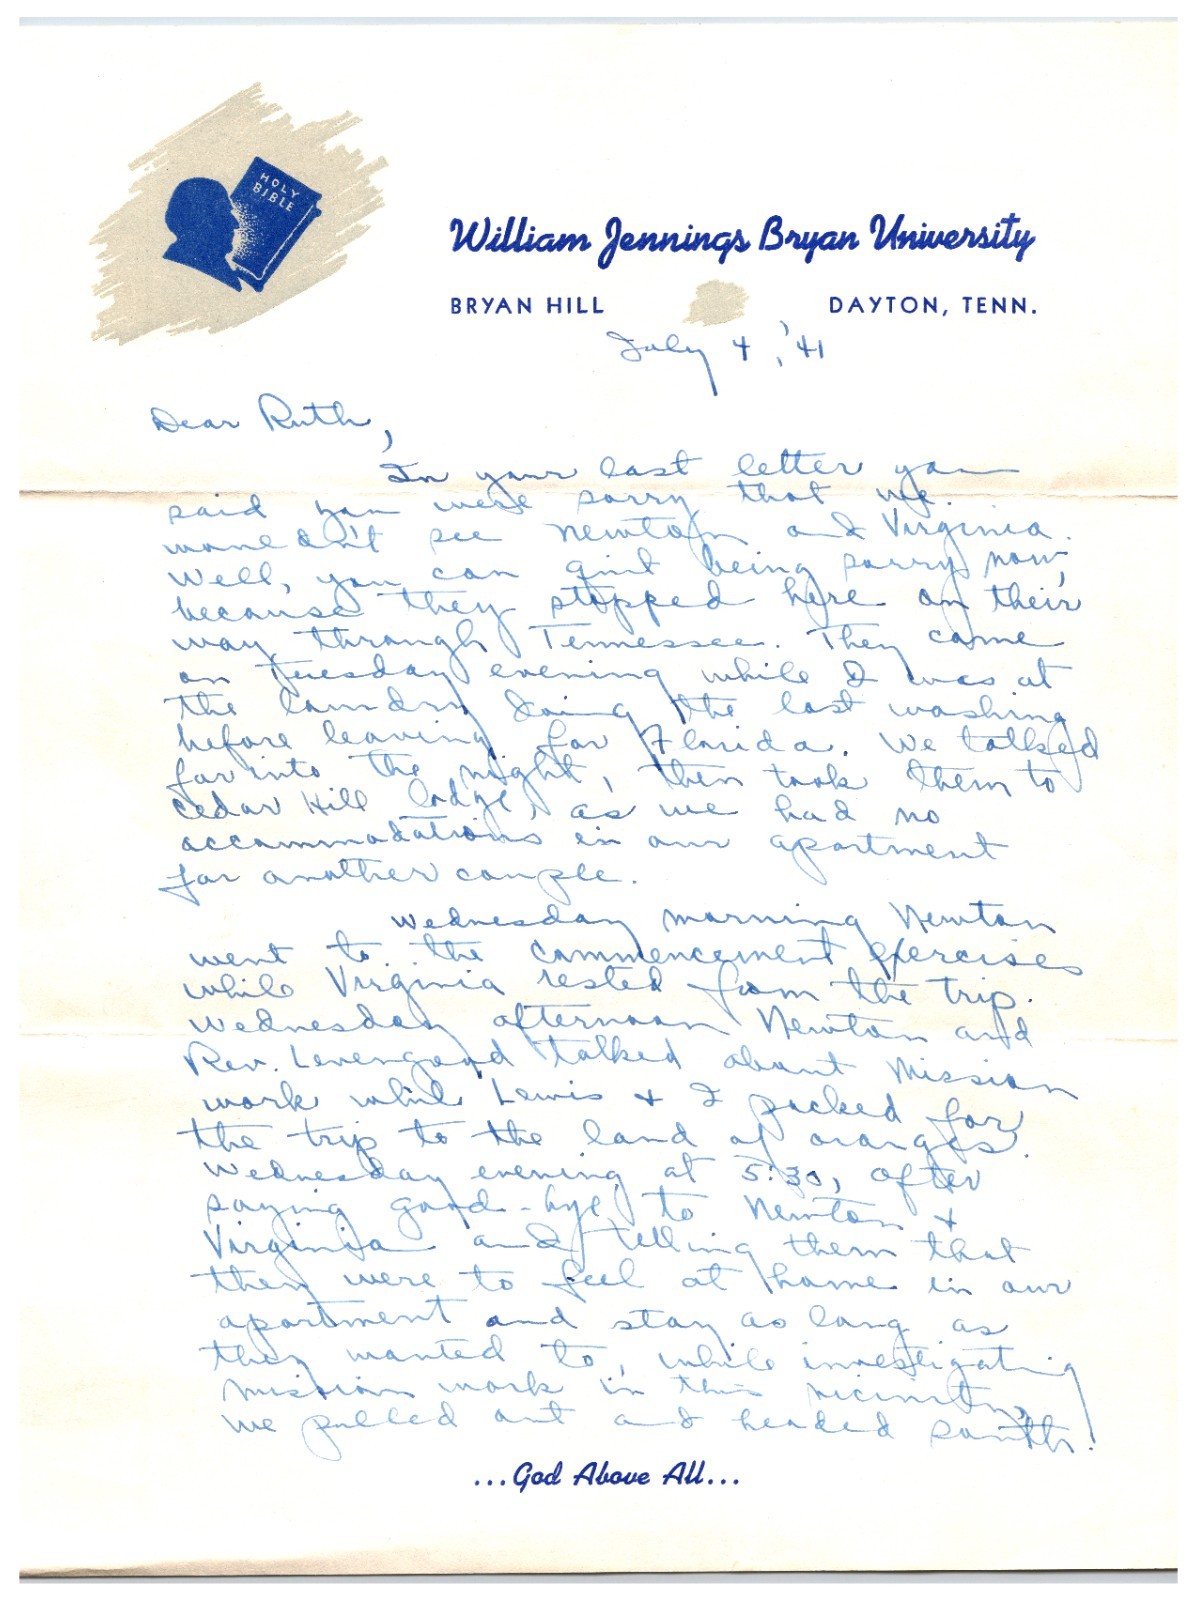 HOLY
BIBLE
William Jennings Bryan University
BRYAN HILL
DAYTON, TENN.
July 4, '41
Dear Ruth,
In your last letter you
said you were sorry that we
wouldn't see Newton and Virginia.
Well, you can quit being sorry now,
because they stopped here on their
way through Tennessee. They came
on Tuesday evening while I was at
the laundry doing the last washing
before leaving for Florida. We talked
far into the night, then took them to
Cedar Hill lodge, as we had no
accommodations in our apartment
for another couple.
Wednesday morning Newton
went to the commencement exercises
while Virginia rested from the trip.
Wednesday afternoon Newton and
Rev. Levengood talked about Mission
work while Lewis + I packed for
the trip to the land of oranges.
Wednesday evening at 5:30, after
saying good-bye to Newton +
Virginia and telling them that
they were to feel at home in our
apartment and stay as long as
they wanted to, while investigating
mission work in this vicinity,
we pulled out and headed south.
...God Above All...